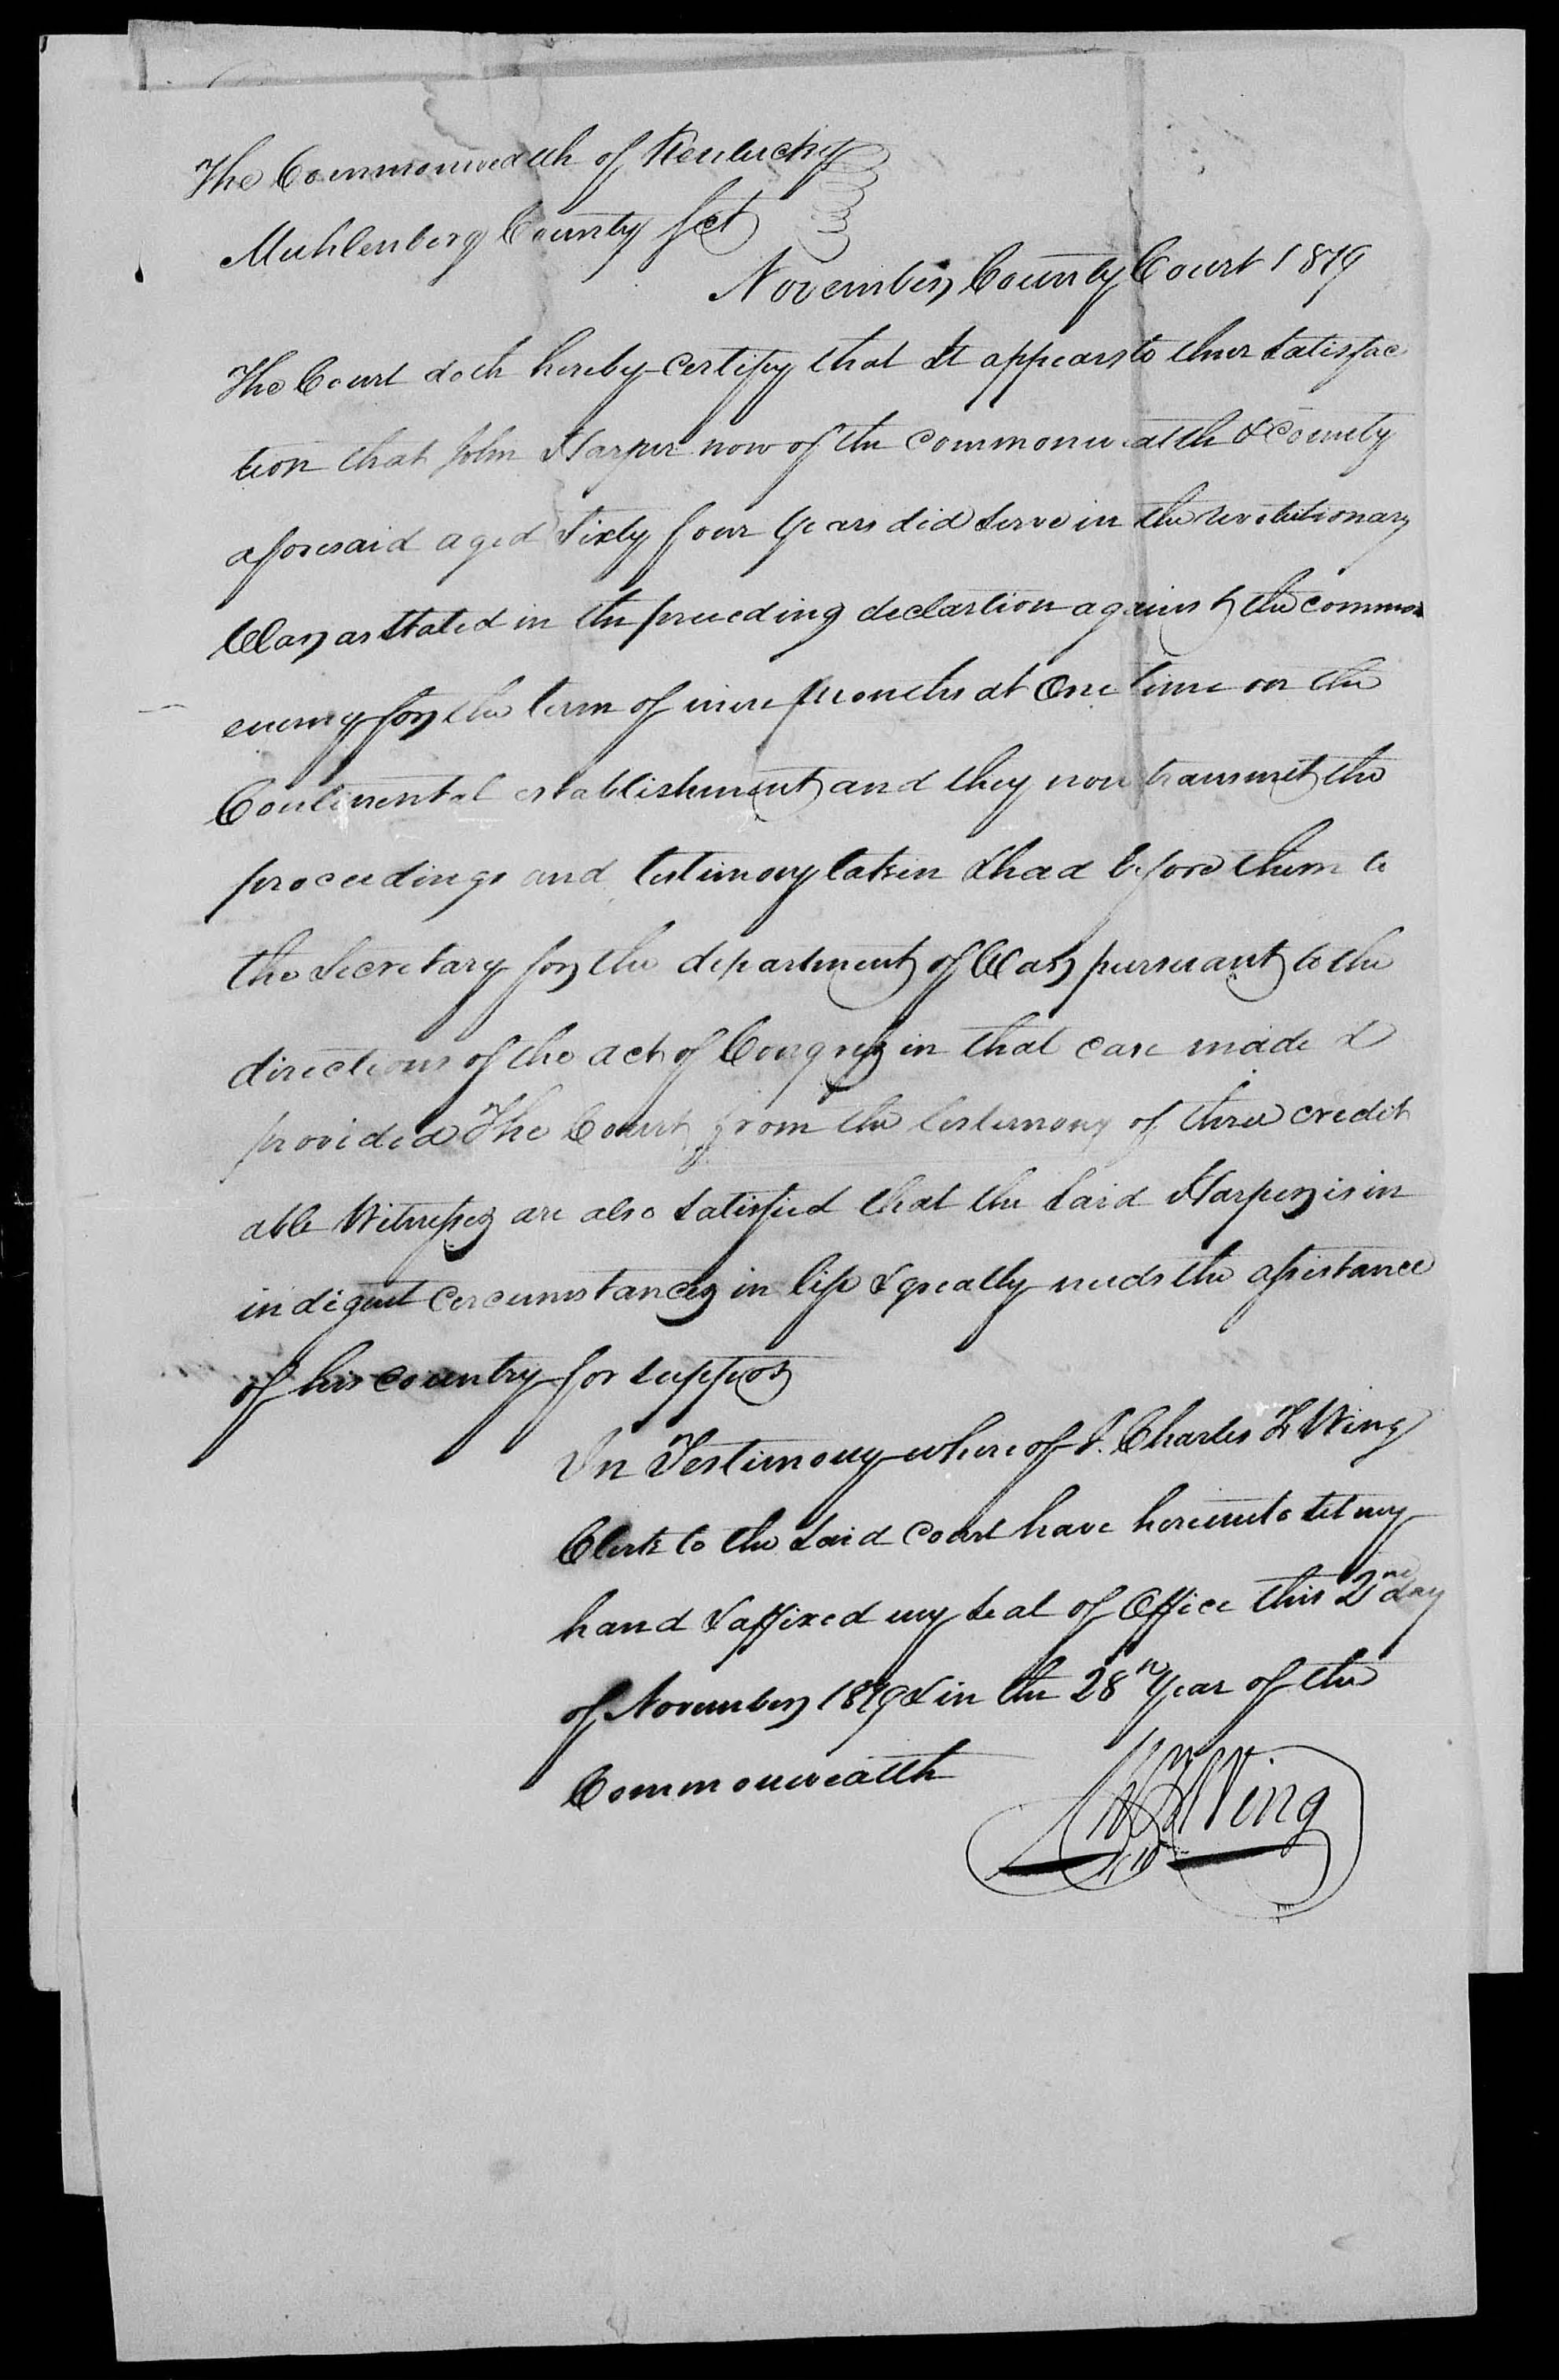 The Commonwealth of Kentucky
Muhlenberg County Sct
November County Court 1819
The Court doth hereby certify that it appears to their satisfac
tion that John Harper now of the commonwealth & County
aforesaid aged Sixty four Years did serve in the revolutionary
War as stated in the preceding declartion against the common
enemy for the term of nine months at One time on the
Continental establishment and they now transmit the
proceedings and testimony taken & had before them to
the Secretary for the department of War pursuant to the
directions of the act of Congress in that case made &
provided The Court from the testimony of three credit
able Witnesses are also satisfied that the said Harper is in
indigent circumstances in life & greatly needs the assistance
of his country for suppor
In Testimony whereof I. Charles F Wing
Clerk to the said court have hereunto set my
hand & affixed my seal of Office this 2nd day
of November 1819 & in the 28th Year of the
Commonwealth
Ch F Wing